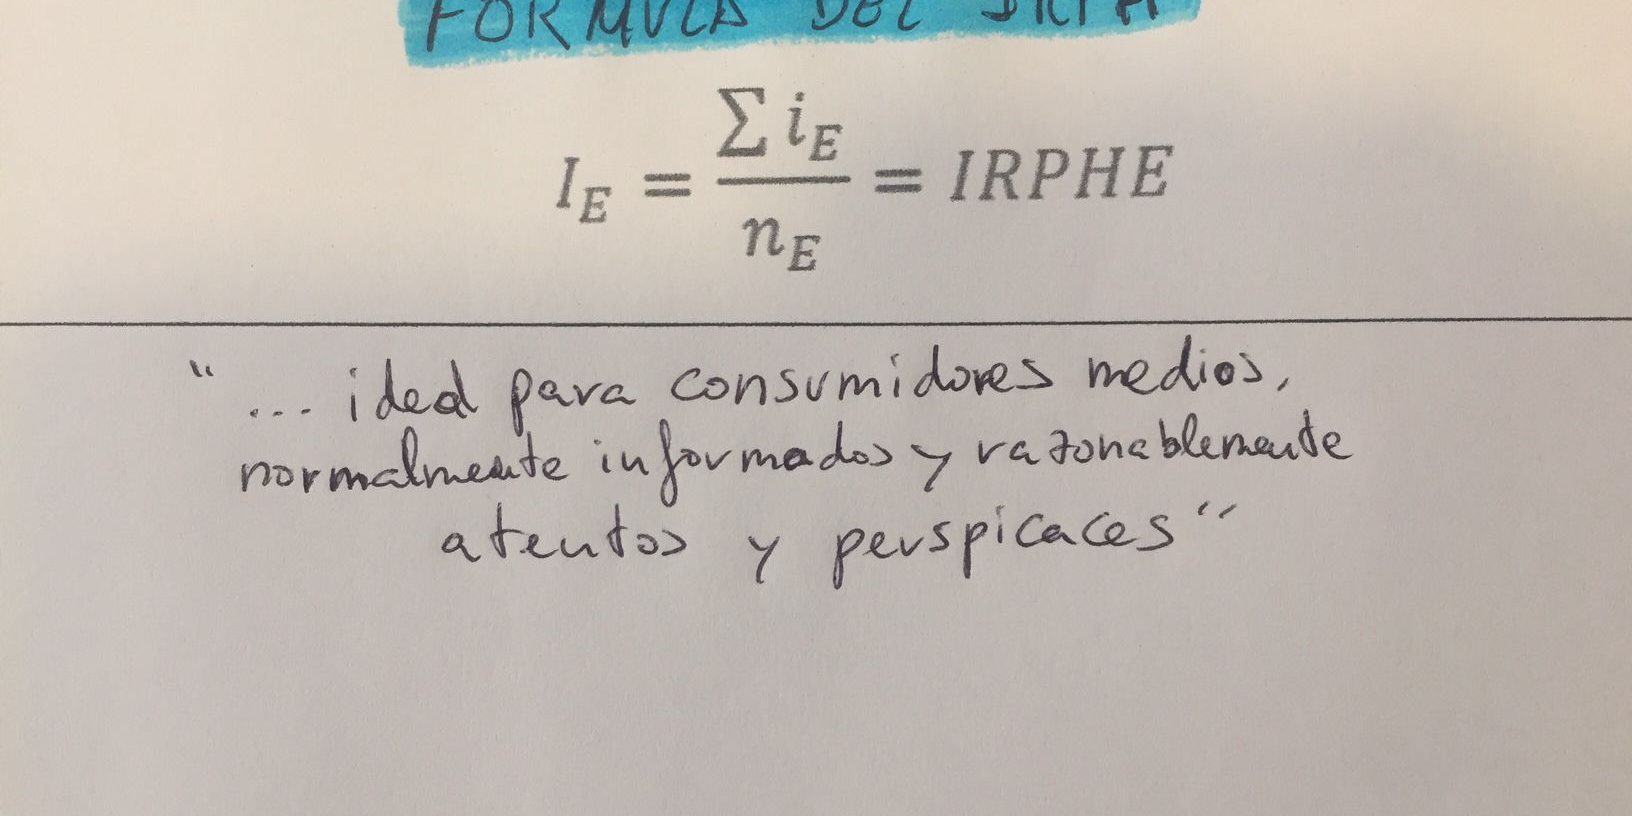 FORMULA DEL IRPH
I_E = ∑ i_E / n_E = IRPHE
“ ... ideal para consumidores medios,
normalmente informados y razonablemente
atentos y perspicaces “